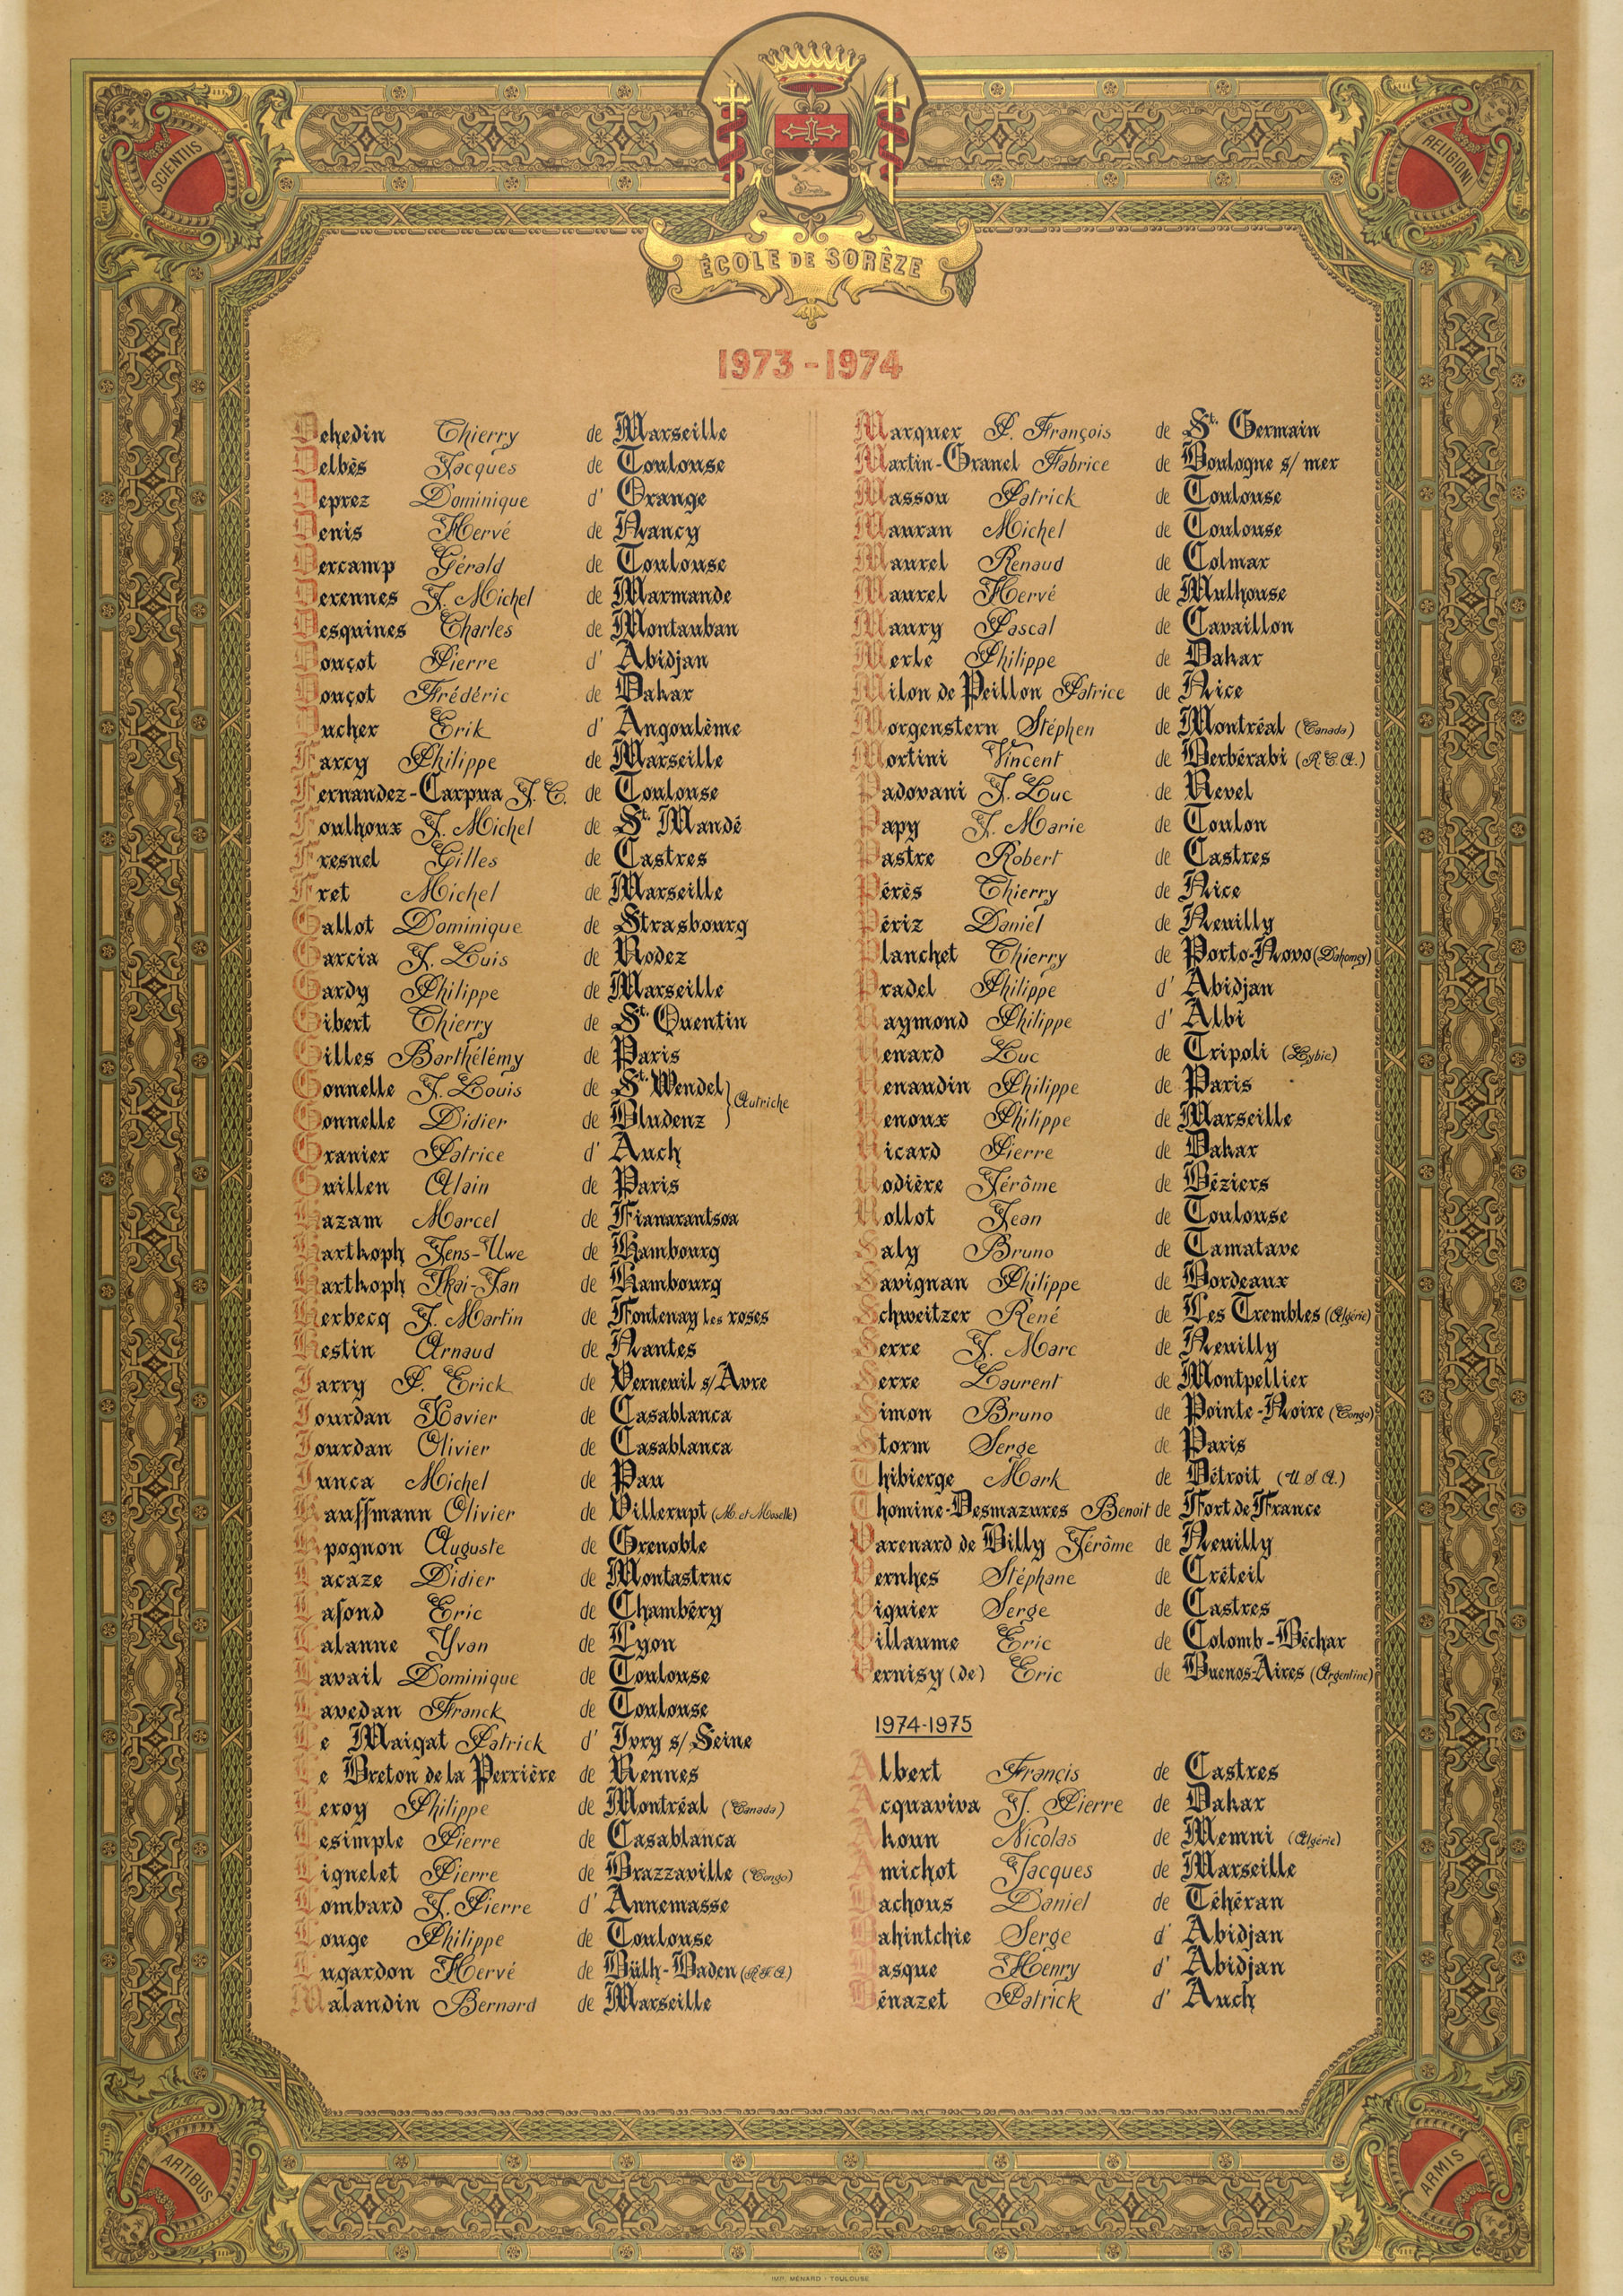 SCIENTIIS
RELIGIONI
ÉCOLE DE SORÈZE
1973-1974
Dehedin Thierry de Marseille
Delbès Jacques de Toulouse
Deprez Dominique d' Orange
Denis Hervé de Nancy
Dercamp Gérald de Toulouse
Derennes J. Michel de Marmande
Desquines Charles de Montauban
Douçot Pierre d' Abidjan
Douçot Frédéric de Dakar
Ducher Erik d' Angoulème
Farcy Philippe de Marseille
Fernandez-Carpua J. C. de Toulouse
Foulhoux J. Michel de St. Mandé
Fresnel Gilles de Castres
Fret Michel de Marseille
Gallot Dominique de Strasbourg
Garcia J. Luis de Rodez
Gardy Philippe de Marseille
Gibert Thierry de St. Quentin
Gilles Barthélémy de Paris
Gonnelle J. Louis de St. Wendel
Gonnelle Didier de Bludenz } Autriche
Granier Patrice d' Auch
Guillen Alain de Paris
Hazam Marcel de Fianarantsoa
Harthoph Jens-Uwe de Hambourg
Harthoph Jkai-Jan de Hambourg
Herbecq J. Martin de Fontenay Les roses
Hestin Arnaud de Nantes
Jarry P. Erick de Verneuil s/Avre
Jourdan Xavier de Casablanca
Jourdan Olivier de Casablanca
Junca Michel de Pau
Kauffmann Olivier de Villerupt (M. et Moselle)
Kpognon Auguste de Grenoble
Lacaze Didier de Montastruc
Lafond Eric de Chambéry
Lalanne Yvan de Lyon
Lavail Dominique de Toulouse
Lavedan Franck de Toulouse
Le Maigat Patrick d' Ivry s/Seine
Le Breton de la Perrière de Rennes
Leroy Philippe de Montréal (Canada)
Lesimple Pierre de Casablanca
Lignelet Pierre de Brazzaville (Congo)
Lombard J. Pierre d' Annemasse
Louge Philippe de Toulouse
Lugardon Hervé de Bülh-Baden (R F A)
Malandin Bernard de Marseille
Marquer P. François de St. Germain
Martin-Granel Fabrice de Boulogne s/ mer
Massou Patrick de Toulouse
Mauran Michel de Toulouse
Maurel Renaud de Colmar
Maurel Hervé de Mulhouse
Maury Pascal de Cavaillon
Merle Philippe de Dakar
Milon de Peillon Patrice de Nice
Morgenstern Stéphen de Montréal (Canada)
Mortini Vincent de Berbérabi (R C A.)
Padovani J. Luc de Revel
Papy J. Marie de Toulon
Pastre Robert de Castres
Pérès Thierry de Nice
Périz Daniel de Neuilly
Planchet Thierry de Porto-Novo (Dahomey)
Pradel Philippe d' Abidjan
Raymond Philippe d' Albi
Renard Luc de Tripoli (Lybie)
Renaudin Philippe de Paris
Renoux Philippe de Marseille
Ricard Pierre de Dakar
Rodière Jérôme de Béziers
Rollot Jean de Toulouse
Saly Bruno de Tamatave
Savignan Philippe de Bordeaux
Schweitzer René de Les Trembles (Algérie)
Serre J. Marc de Neuilly
Serre Laurent de Montpellier
Simon Bruno de Pointe-Noire (Congo)
Storm Serge de Paris
Thibierge Mark de Détroit (U S A.)
Thomine-Desmazures Benoit de Fort de France
Varenard de Billy Jérôme de Neuilly
Vernhes Stéphane de Créteil
Viguier Serge de Castres
Villaume Eric de Colomb-Béchar
Vernisy (de) Eric de Buenos-Aires (Argentine)
1974-1975
Albert Francis de Castres
Acquaviva J. Pierre de Dakar
Akoun Nicolas de Memni (Algérie)
Amichot Jacques de Marseille
Bachous Daniel de Téhéran
Bahintchie Serge d' Abidjan
Basque Henry d' Abidjan
Bénazet Patrick d' Auch
ARTIBUS
ARMIS
IMP. MÉNARD - TOULOUSE